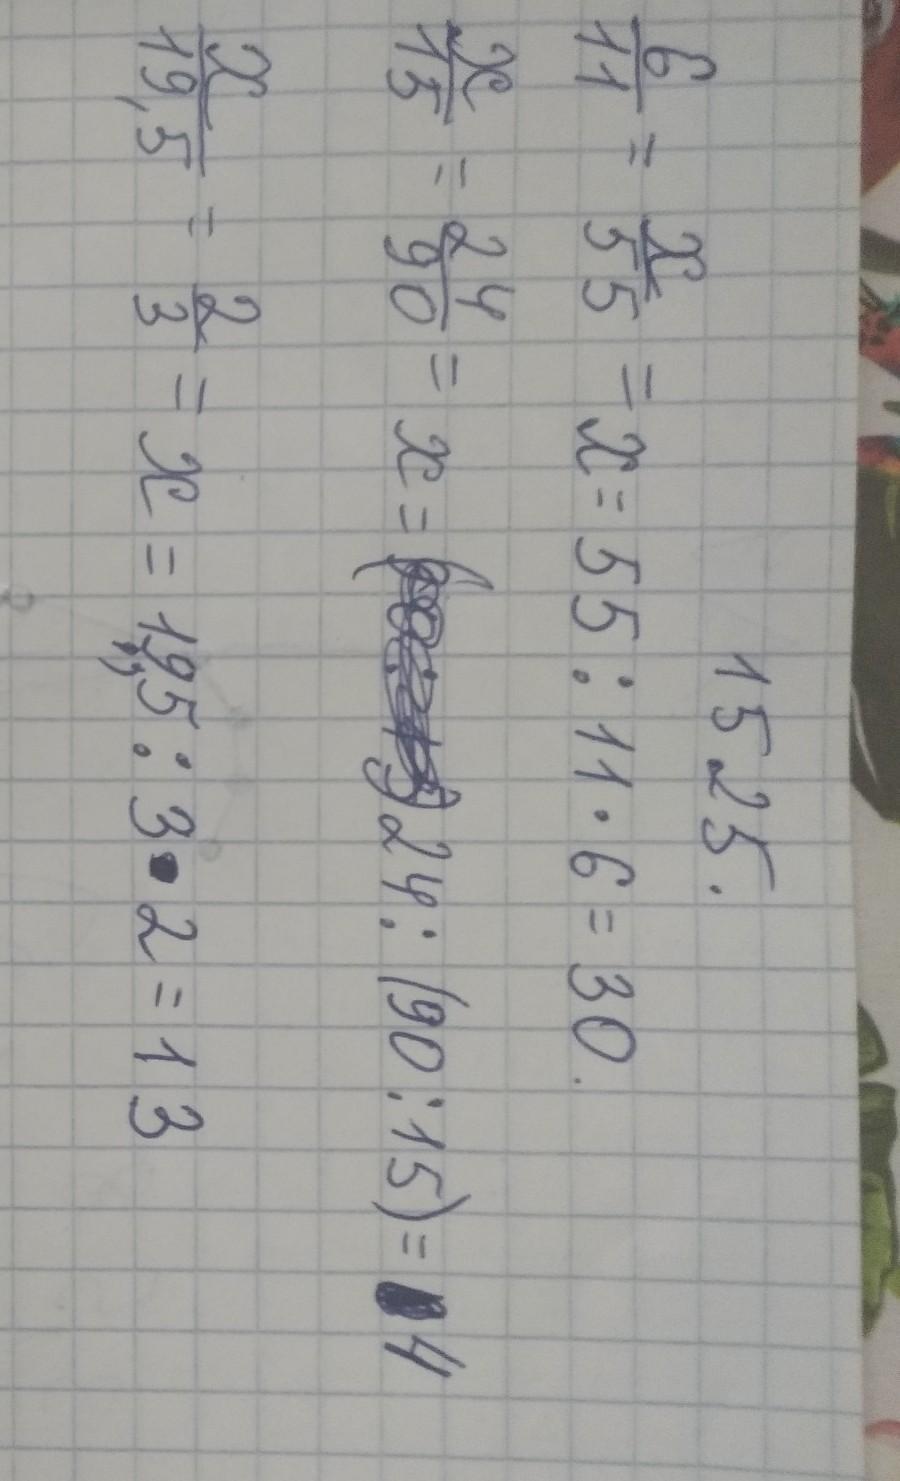 1525.
6/11 = x/55 = x = 55 : 11 · 6 = 30.
x/15 = 24/90 = x = ( 24 : (90 : 15) = 4
x/19,5 = 2/3 = x = 19,5 : 3 · 2 = 13